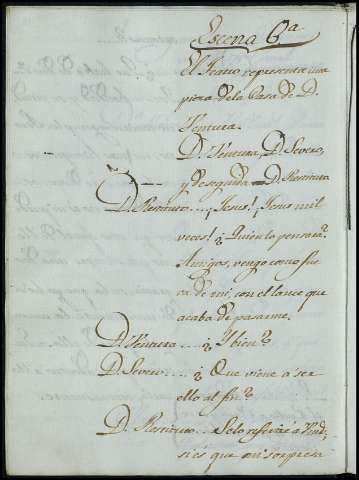 Escena 6a
El Teatro representa una
pieza de la Casa de D.
Ventura.
D. Ventura, D. Severo,
y de seguida D. Restituto
D. Restituto.... ¡Jesus! ¡Jesus mil
veces! ¿Quien lo pensara?
Amigos, vengo como fue
ra de mi, con el lance que
acaba de pasarme.
D. Ventura.... ¿I bien?
D. Severo.... ¿Que viene a ser
ello al fin?
D. Restituto.... Selo referiré a Vmds,
si es que mi sorpresa